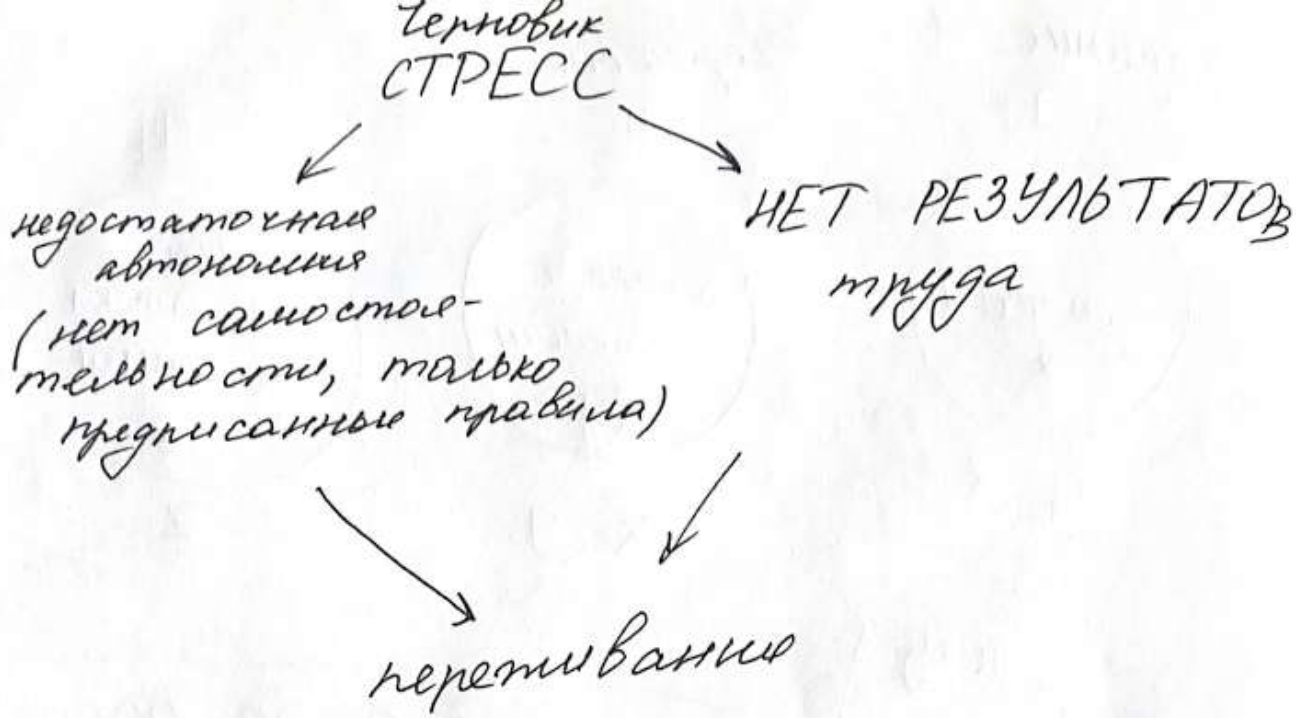 Черновик
СТРЕСС
недостаточная
автономия
(нет самостоя-
тельности, только
предписанные правила)
НЕТ РЕЗУЛЬТАТОВ
труда
переживание